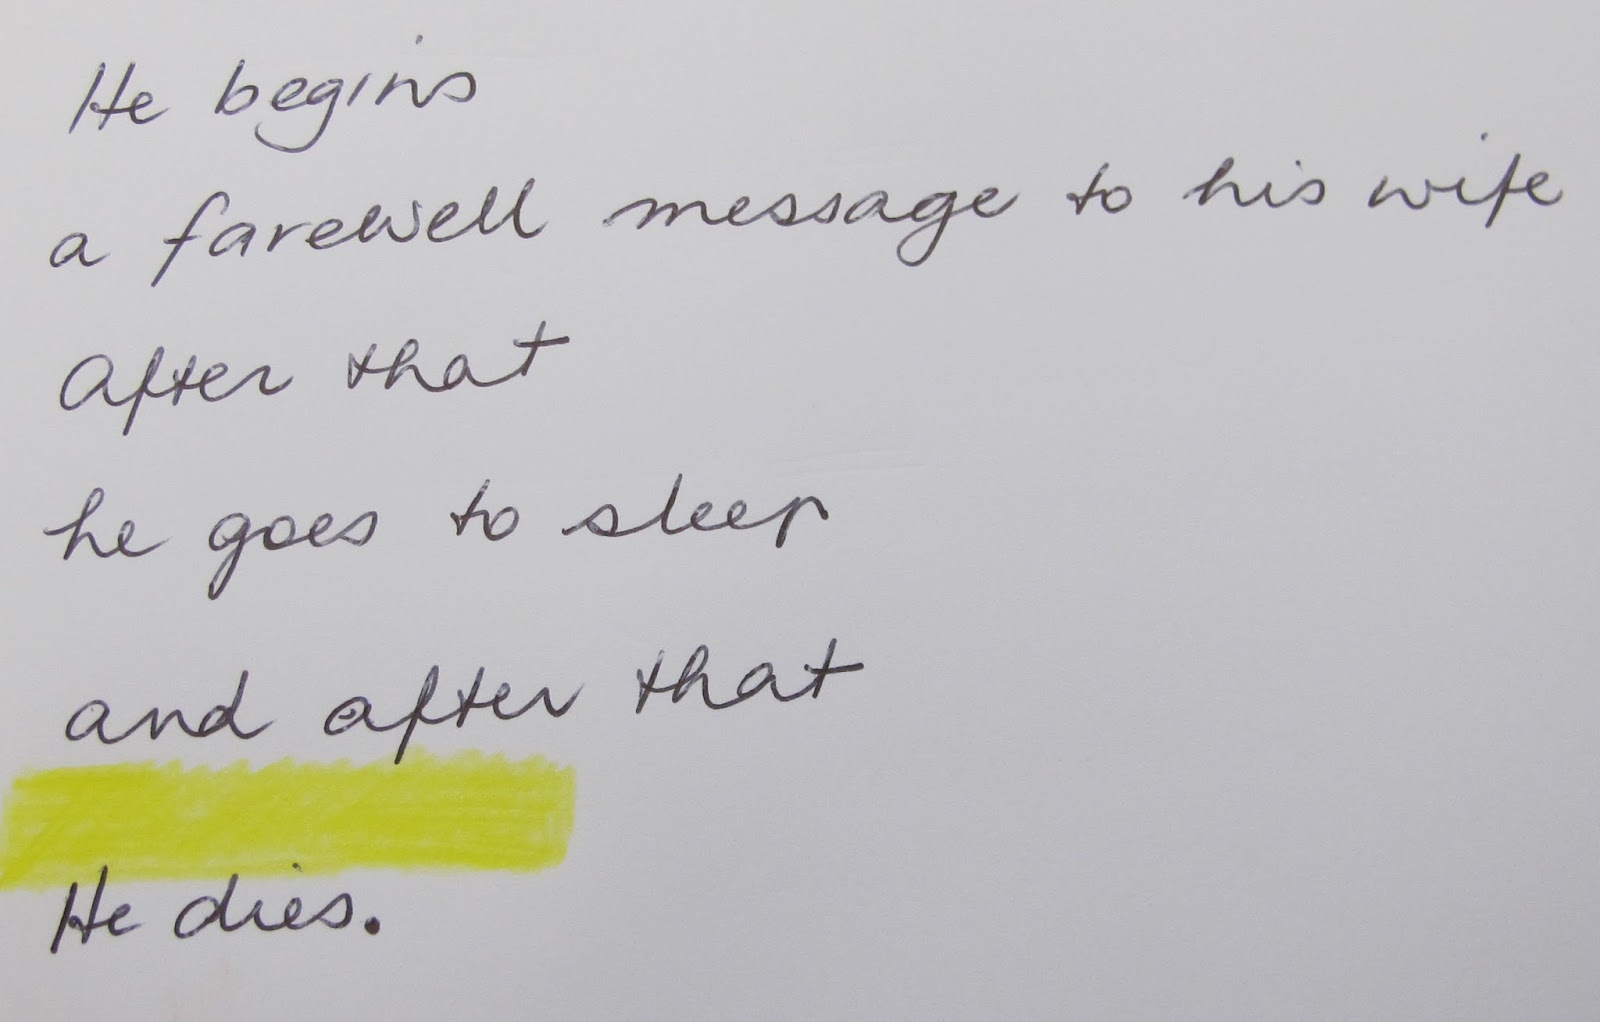 He begins
a farewell message to his wife
After that
he goes to sleep
and after that
He dies.